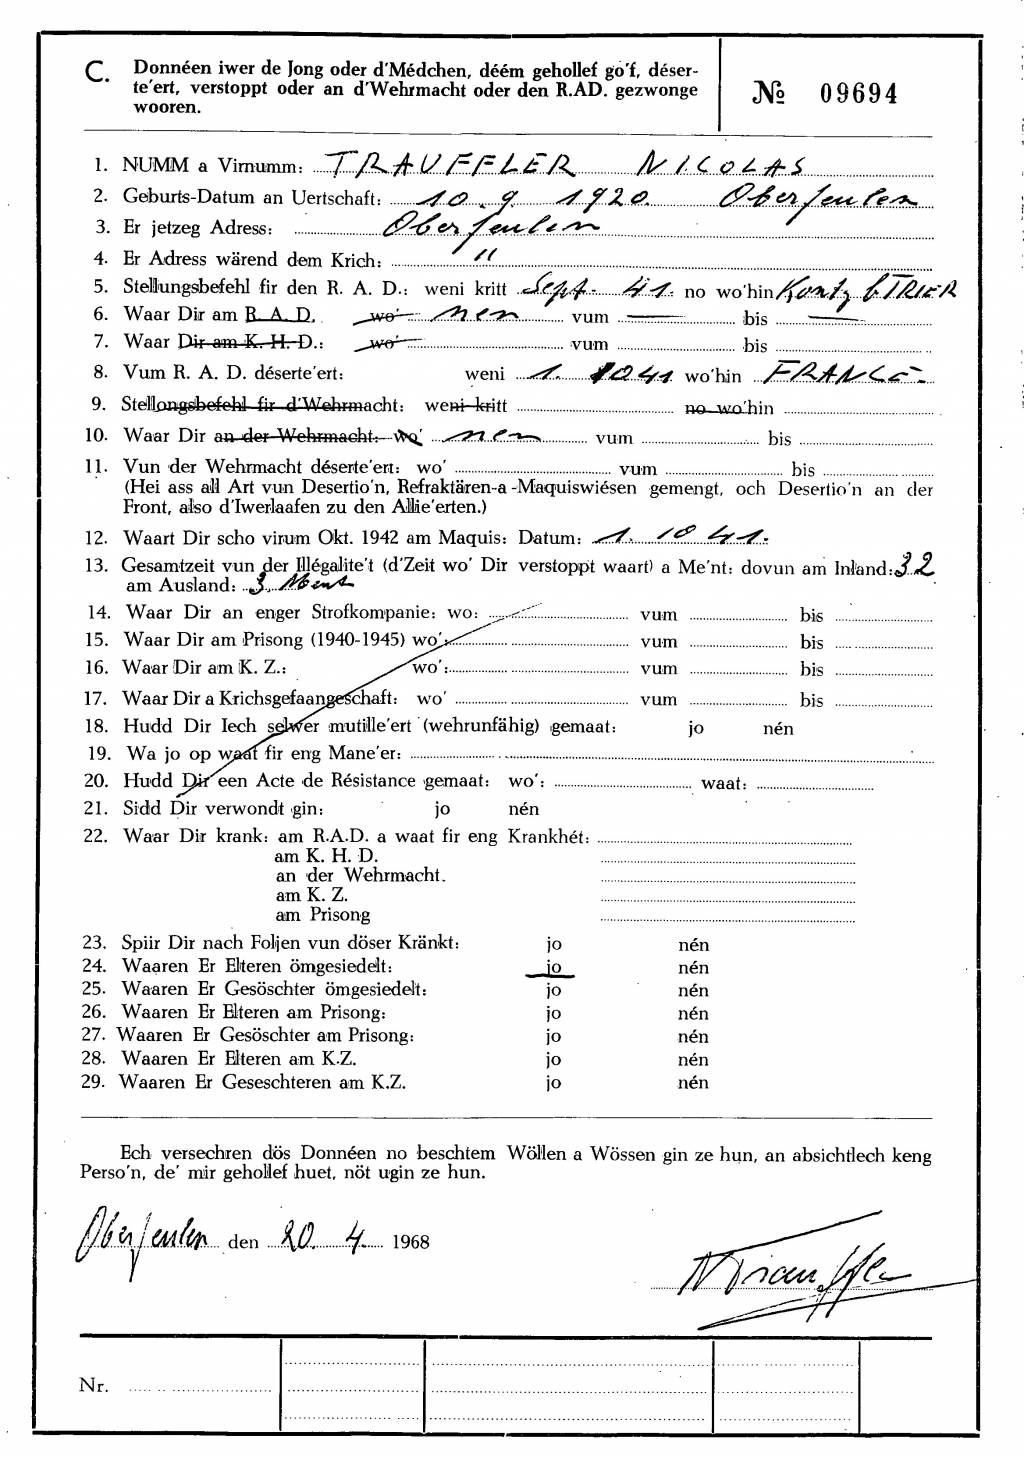 C. Donnéen iwer de Jong oder d'Médchen, déém gehollef go'f, déser-
te'ert, verstoppt oder an d'Wehrmacht oder den R.AD. gezwonge
wooren.
№ 09694
1. NUMM a Virnumm: TRAUFFLER NICOLAS
2. Geburts-Datum an Uertschaft: 10. 9 1920. Oberfeulen
3. Er jetzeg Adress: Oberfeulen
4. Er Adress wärend dem Krich: "
5. Stellungsbefehl fir den R. A. D.: weni kritt Sept. 41. no wo'hin Kontz b TRIER
6. Waar Dir am R. A. D. wo' nen vum — bis —
7. Waar Dir am K. H. D.: wo' vum bis
8. Vum R. A. D. déserte'ert: weni 1. 1041 wo'hin FRANCE.
9. Stellongsbefehl fir d'Wehrmacht: weni kritt no wo'hin
10. Waar Dir an der Wehrmacht: wo' nen vum bis
11. Vun der Wehrmacht déserte'ert: wo' vum bis
(Hei ass all Art vun Desertio'n, Refraktären-a-Maquiswiésen gemengt, och Desertio'n an der
Front, also d'Iwerlaafen zu den Allie'erten.)
12. Waart Dir scho virum Okt. 1942 am Maquis: Datum: 1. 10 41.
13. Gesamtzeit vun der Illégalite't (d'Zeit wo' Dir verstoppt waart) a Me'nt: dovun am Inland: 32
am Ausland: 3. Ment
14. Waar Dir an enger Strofkompanie: wo: vum bis
15. Waar Dir am Prisong (1940-1945) wo': vum bis
16. Waar Dir am K. Z.: wo': vum bis
17. Waar Dir a Krichsgefaangeschaft: wo' vum bis
18. Hudd Dir Iech selwer mutille'ert (wehrunfähig) gemaat: jo nén
19. Wa jo op waat fir eng Mane'er:
20. Hudd Dir een Acte de Résistance gemaat: wo': waat:
21. Sidd Dir verwondt gin: jo nén
22. Waar Dir krank: am R.A.D. a waat fir eng Krankhét:
am K. H. D.
an der Wehrmacht.
am K. Z.
am Prisong
23. Spiir Dir nach Foljen vun döser Kränkt: jo nén
24. Waaren Er Elteren ömgesiedelt: jo nén
25. Waaren Er Gesöschter ömgesiedelt: jo nén
26. Waaren Er Elteren am Prisong: jo nén
27. Waaren Er Gesöschter am Prisong: jo nén
28. Waaren Er Elteren am K.Z. jo nén
29. Waaren Er Geseschteren am K.Z. jo nén
Ech versechren dös Donnéen no beschtem Wöllen a Wössen gin ze hun, an absichtlech keng
Perso'n, de' mir gehollef huet, nöt ugin ze hun.
Oberfeulen den 20. 4. 1968
N Trauffler
Nr.